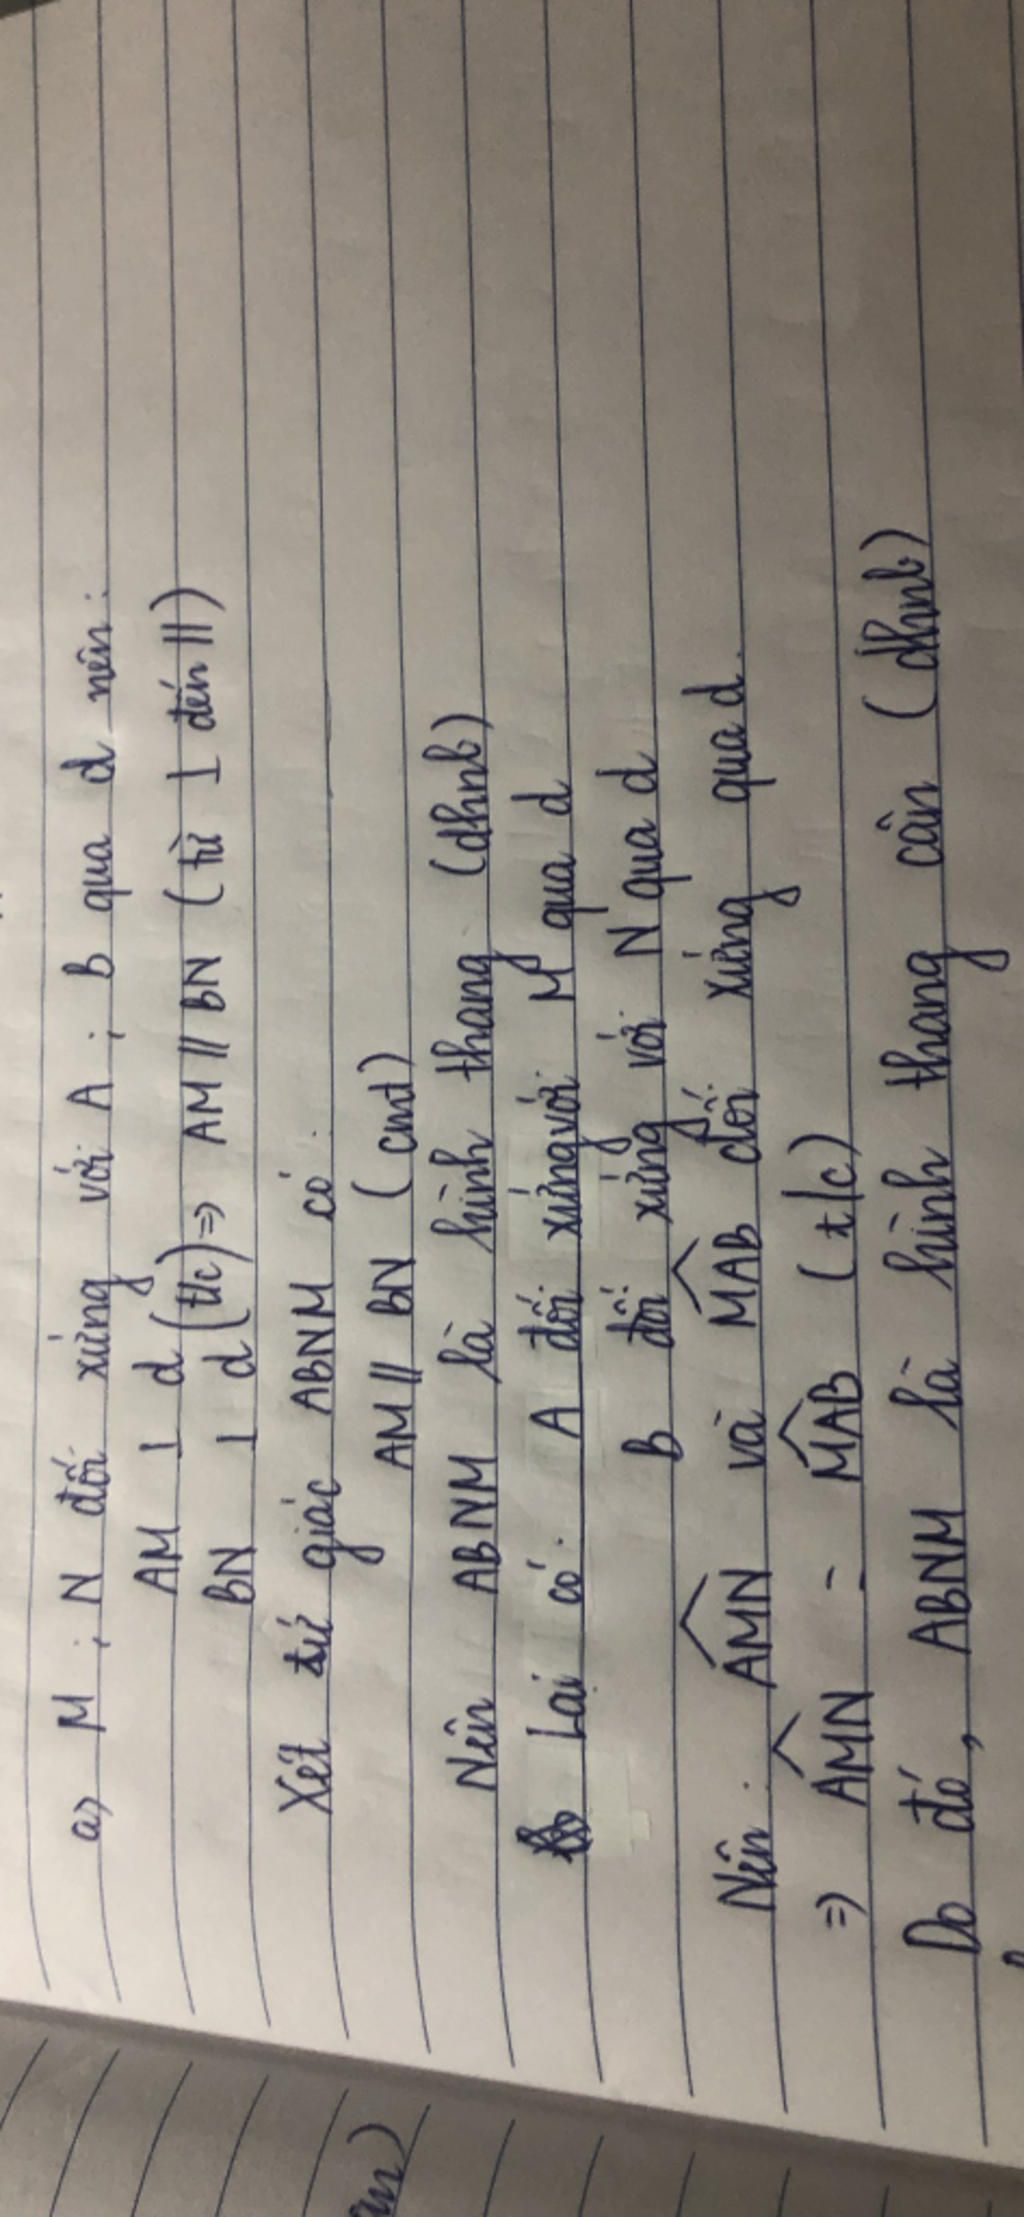 a) M ; N đối xứng với A ; B qua d nên :
AM ⊥ d (t/c) ⇒ AM // BN (từ ⊥ đến //)
BN ⊥ d
Xét tứ giác ABNM có :
AM // BN (cmt)
Nên ABNM là hình thang (dhnb)
Lại có : A đối xứng với M qua d
B đối xứng với N qua d
Nên : AMN và MAB đối xứng qua d.
⇒ AMN = MAB (t/c)
Do đó, ABNM là hình thang cân (dhnb)